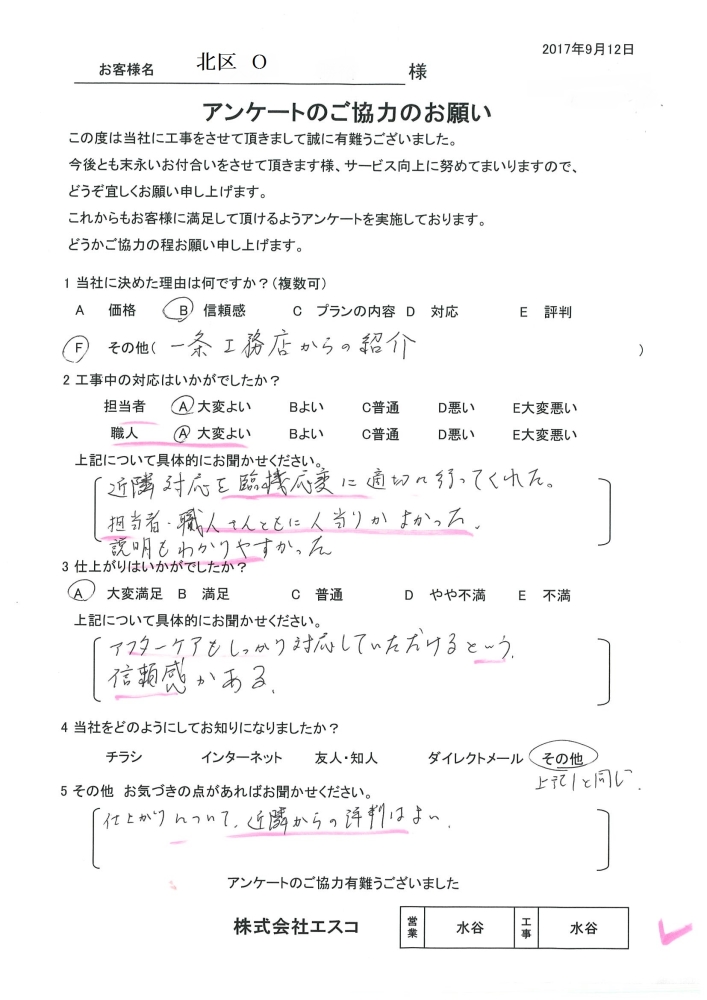 2017年9月12日
お客様名 北区 O 様
アンケートのご協力のお願い
この度は当社に工事をさせて頂きまして誠に有難うございました。
今後とも末永いお付合いをさせて頂きます様、サービス向上に努めてまいりますので、
どうぞ宜しくお願い申し上げます。
これからもお客様に満足して頂けるようアンケートを実施しております。
どうかご協力の程お願い申し上げます。
1 当社に決めた理由は何ですか？(複数可)
A 価格 B 信頼感 C プランの内容 D 対応 E 評判
F その他( 一条工務店からの紹介 )
2 工事中の対応はいかがでしたか？
担当者 A大変よい Bよい C普通 D悪い E大変悪い
職人 A 大変よい Bよい C普通 D悪い E大変悪い
上記について具体的にお聞かせください。
近隣対応を臨機応変に適切に行ってくれた。
担当者・職人さんともに人当りがよかった。
説明もわかりやすかった
3 仕上がりはいかがでしたか？
A 大変満足 B 満足 C 普通 D やや不満 E 不満
上記について具体的にお聞かせください。
アフターケアもしっかり対応していただけるという、
信頼感がある。
4 当社をどのようにしてお知りになりましたか？
チラシ インターネット 友人・知人 ダイレクトメール その他
上記1と同じ.
5 その他 お気づきの点があればお聞かせください。
仕上がりについて、近隣からの評判はよい.
アンケートのご協力有難うございました
株式会社エスコ 営業 水谷 工事 水谷